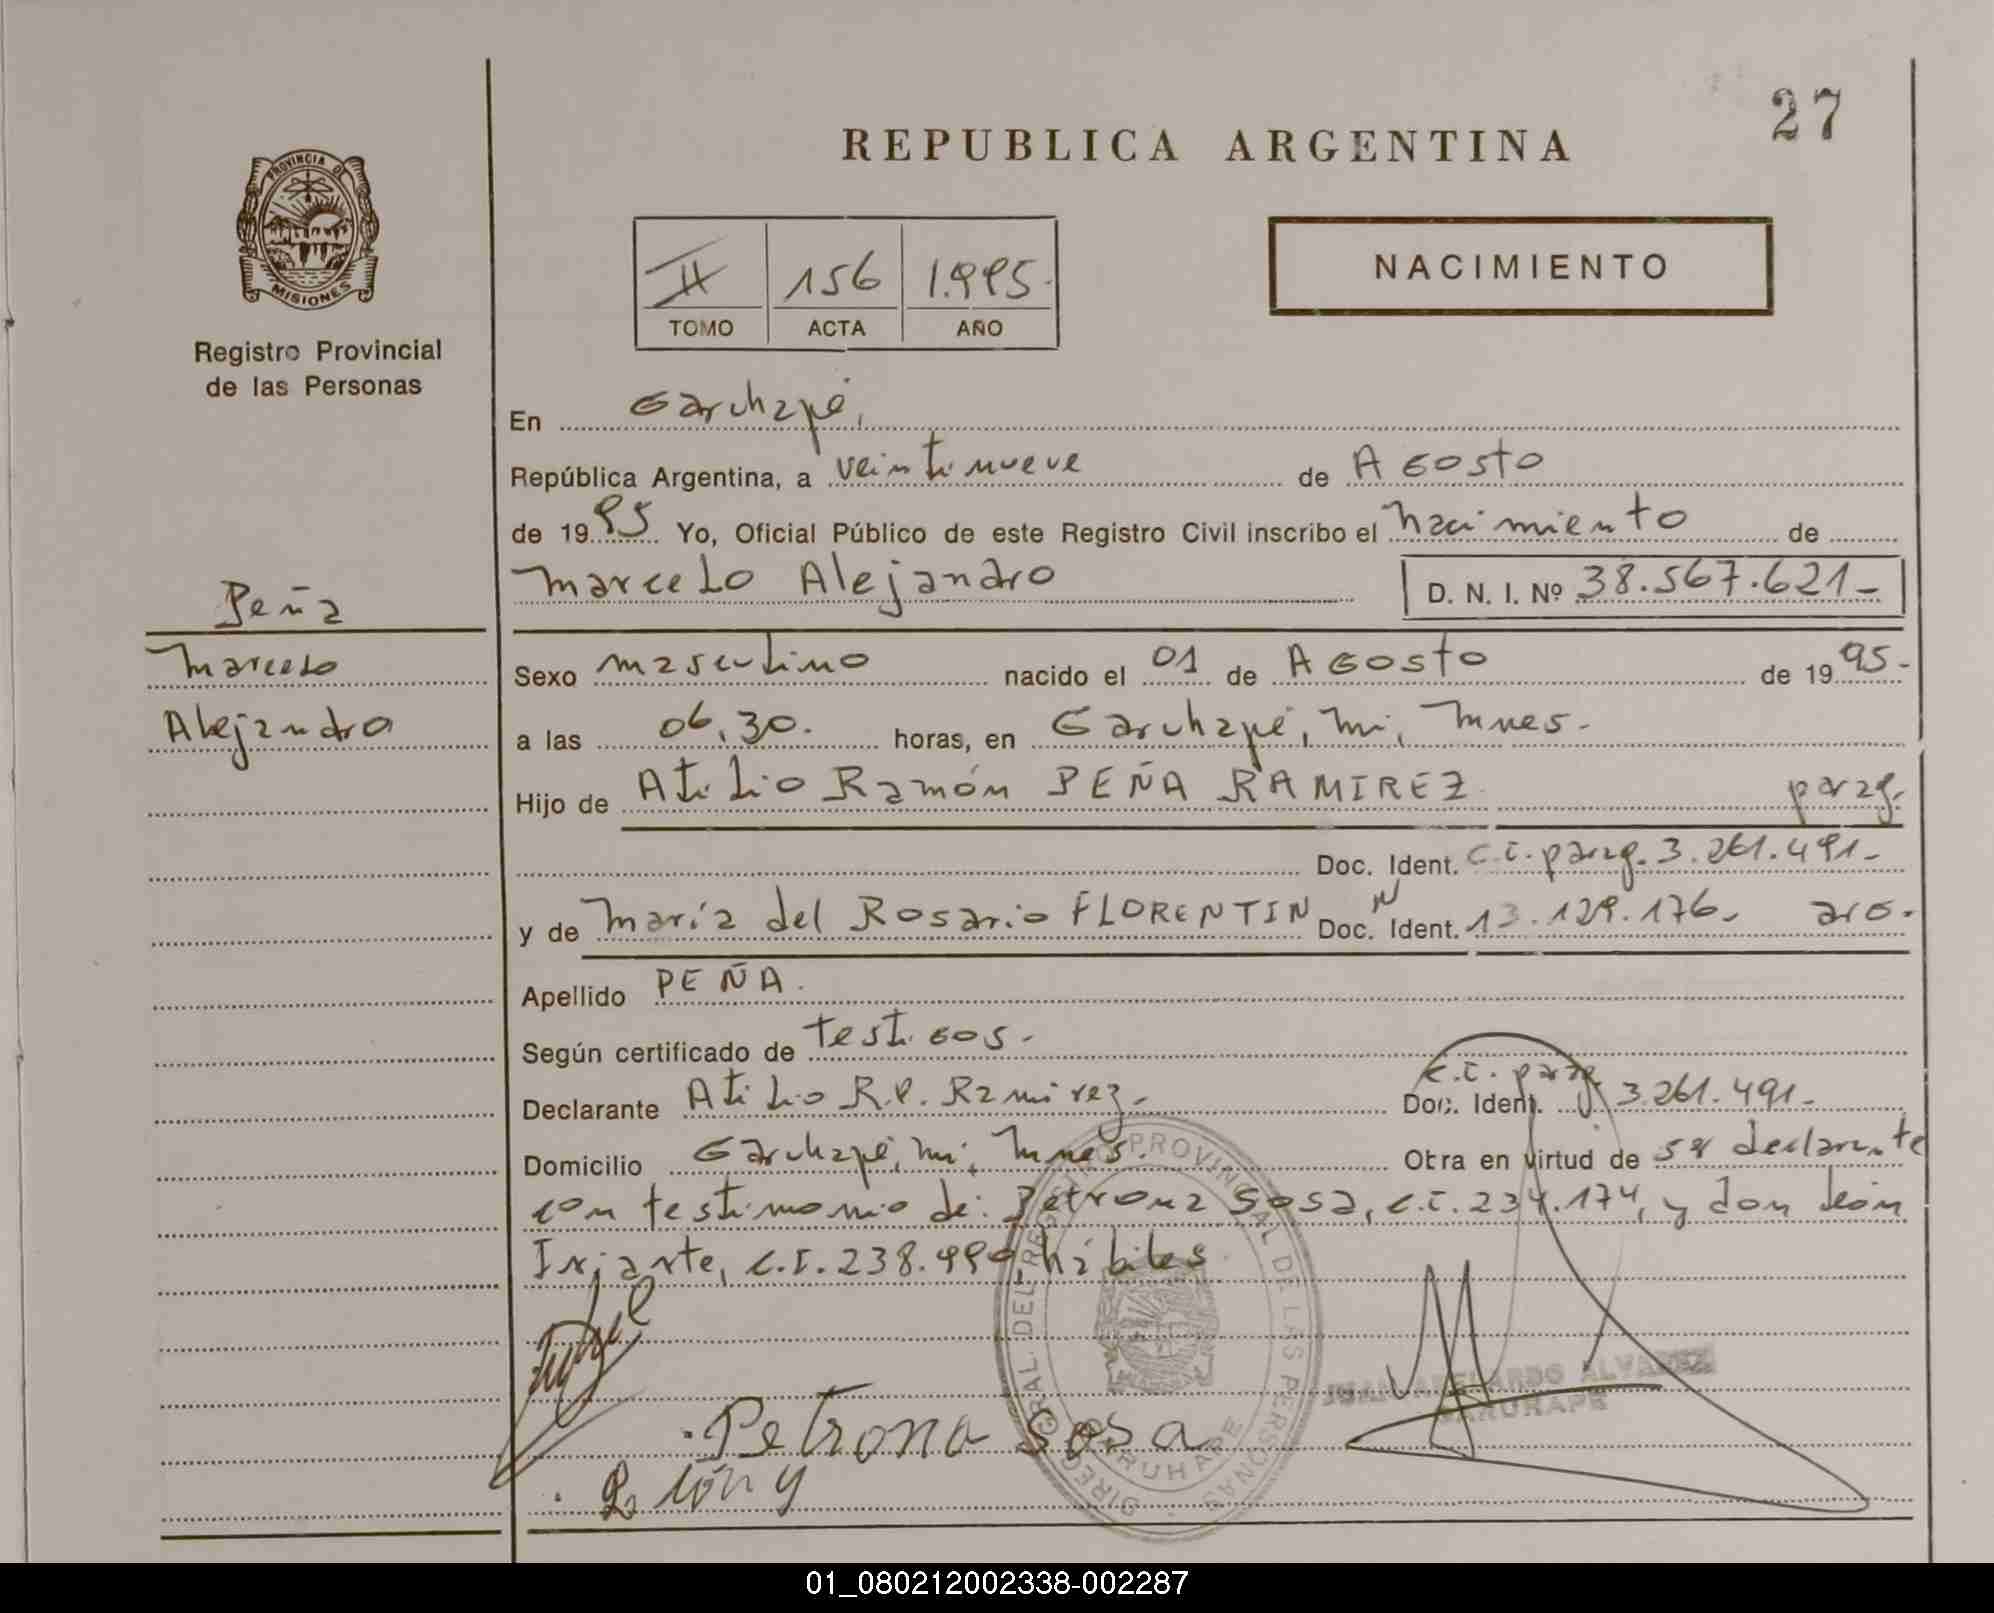 27
REPUBLICA ARGENTINA
PROVINCIA DE
MISIONES
Registro Provincial
de las Personas
II 156 1.995.
TOMO ACTA AÑO
NACIMIENTO
En Garuhapé,
República Argentina, a veintinueve de Agosto
de 1995 Yo, Oficial Público de este Registro Civil inscribo el nacimiento de
Marcelo Alejandro D. N. I. Nº 38.567.621-
Peña
Marcelo
Alejandro
Sexo masculino nacido el 01 de Agosto de 1995.-
a las 06,30. horas, en Garuhapé, Mi, Mnes.-
Hijo de Atilio Ramón PEÑA RAMIREZ parag.
Doc. Ident. C.I. parag. 3.261.491-
y de María del Rosario FLORENTIN Doc. Ident. N 13.129.176- arg.
Apellido PEÑA.
Según certificado de testigos.-
Declarante Atilio R.P. Ramirez.- Doc. Ident. C.I. parag. 3.261.491-
Domicilio Garuhapé, Mi, Mnes. Otra en virtud de ser declarante
con testimonio de: Petrona Sosa, C.I. 234.174, y don León
Iriarte, C.I. 238.990, hábiles.
DIRECC. GRAL. DEL REGISTRO PROVINCIAL DE LAS PERSONAS
GARUHAPE
JUAN ABELARDO ALVAREZ
GARUHAPE
Petrona Sosa
01_080212002338-002287